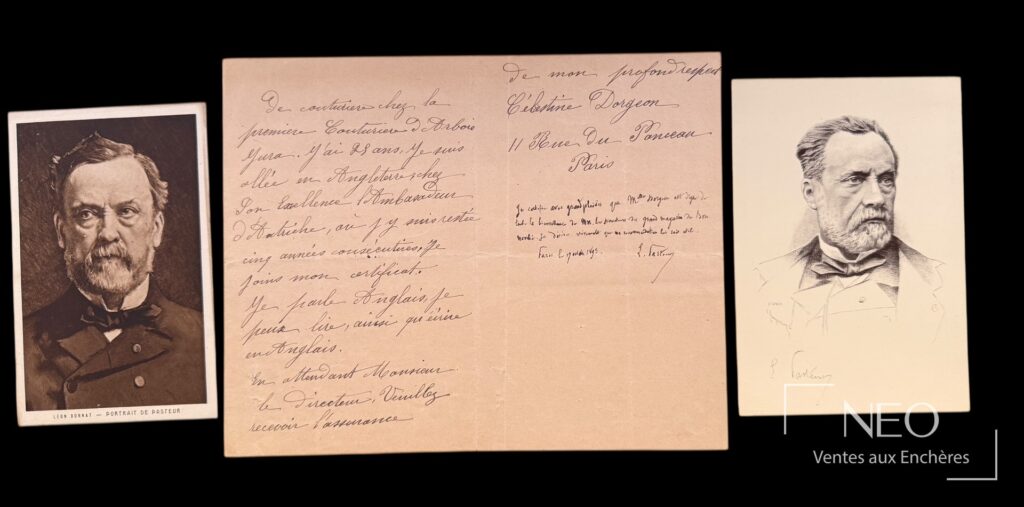 LÉON BONNAT — PORTRAIT DE PASTEUR
De couturière chez la
première Couturière d'Arbois
Jura. J'ai 25 ans, Je suis
allée en Angleterre chez
Son Excellence l'Ambasadeur
d'Autriche, où j'y suis restée
cinq années consécutives, Je
joins mon certificat.
Je parle Anglais, je
peux lire, ainsi qu'écrire
en Anglais.
En attendant Monsieur
le directeur, Veuillez
recevoir l'assurance
de mon profond respect
Célestine Dorgeon
11 Rue du Ponceau
Paris
Je certifie avec grand plaisir que Melle Dorgeon est digne de
toute la bienveillance de MM. les directeurs des grands magasins du Bon
Marché. Je désire vivement que ma recommandation lui soit utile.
Paris L. Pasteur
L. Pasteur
NEO
Ventes aux Enchères